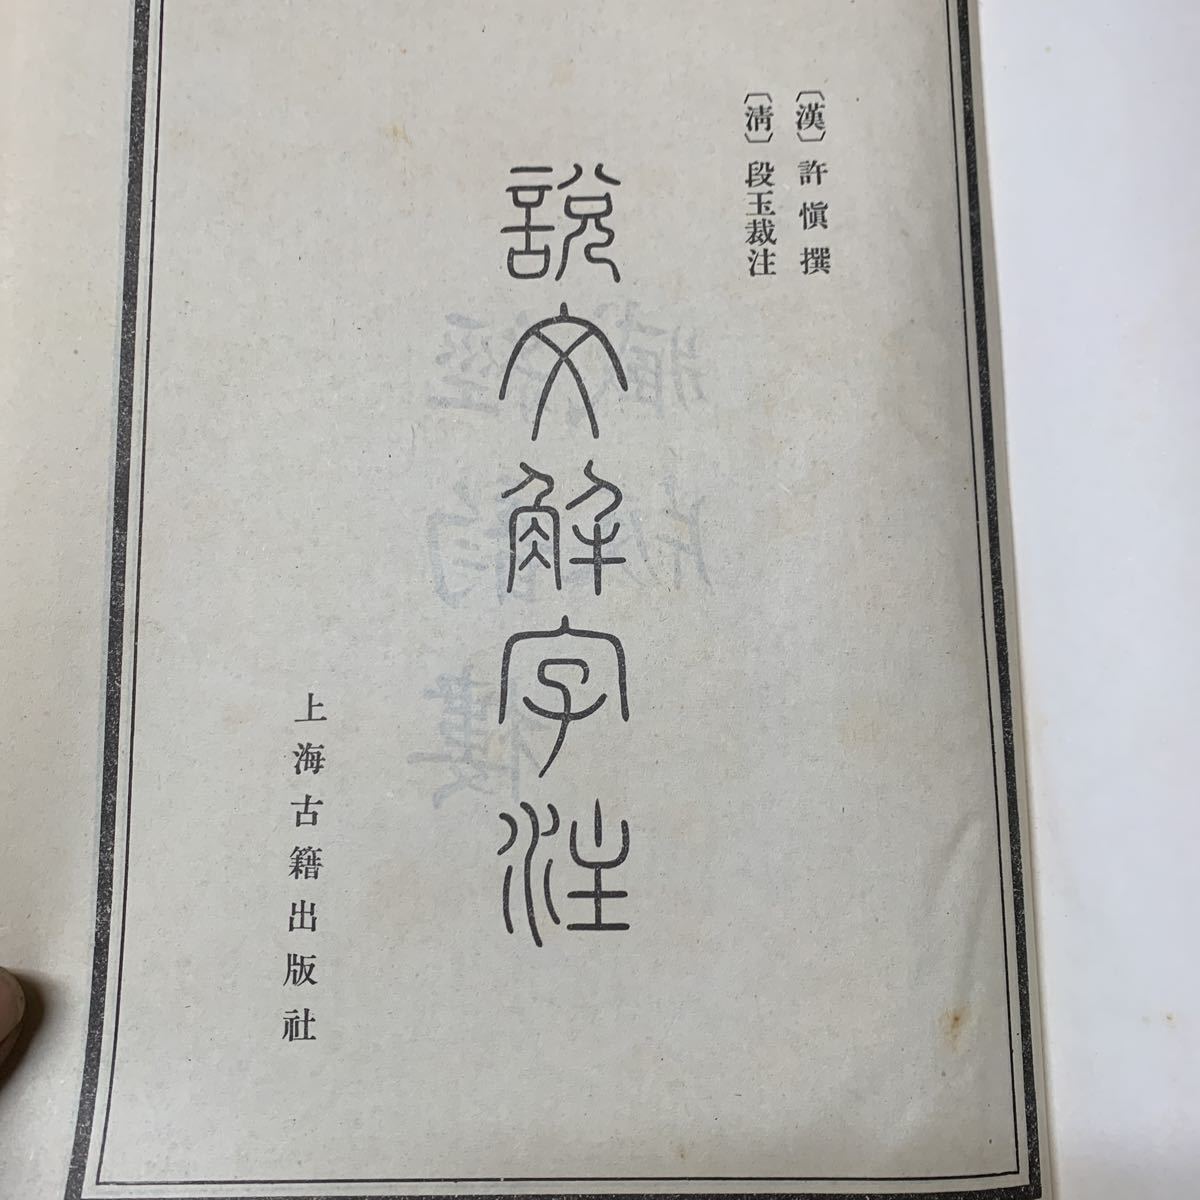 〔漢〕許愼撰
〔淸〕段玉裁注
說文解字注
上海古籍出版社